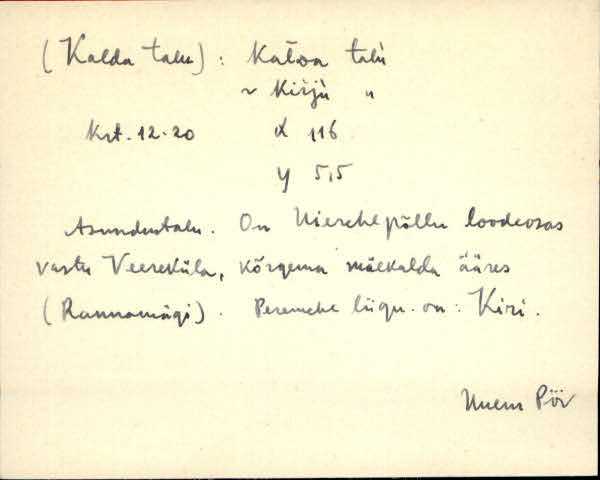 (Kalda talu) : Kalda talù
~ Kirjù "
Krt. 12-20 x 116
y 515
Asundustalu. On põllu loodeosas
vastu Veereküla, kõrgema mäekalda ääres
(Rannamägi). Peremehe liign. on: Kiri.
Pöi